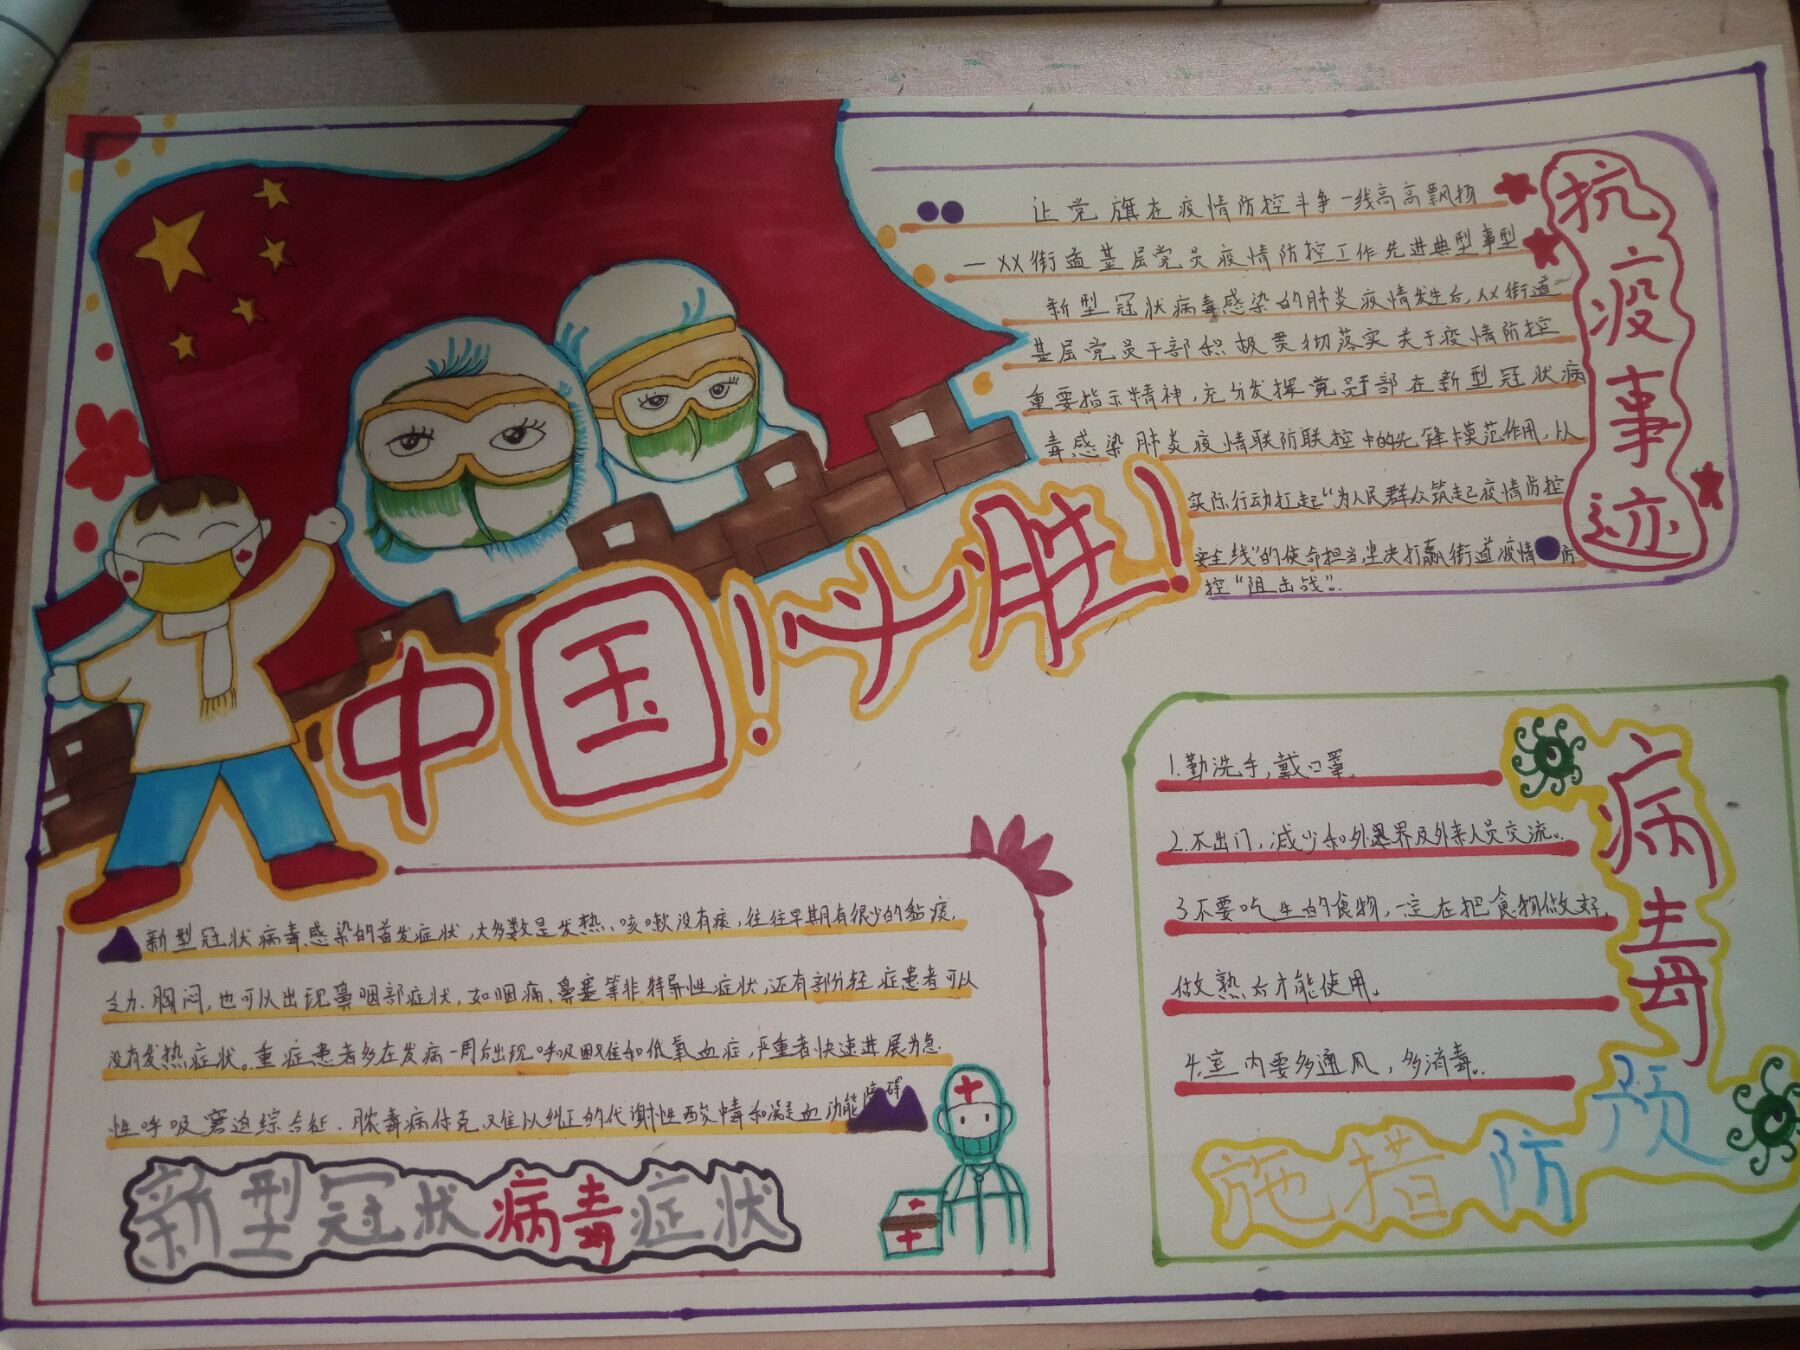 中国!必胜!
抗疫事迹
让党旗在疫情防控斗争一线高高飘扬
一XX街道基层党员疫情防控工作先进典型事型
新型冠状病毒感染的肺炎疫情发生后,XX街道
基层党员干部积极贯彻落实关于疫情防控
重要指示精神,充分发挥党员干部在新型冠状病
毒感染肺炎疫情联防联控中的先锋模范作用,以
实际行动扛起“为人民群众筑起疫情防控
安全线”的使命担当坚决打赢街道疫情防
控“阻击战”。
病毒预防措施
1.勤洗手,戴口罩。
2.不出门,减少和外界及外来人员交流。
3.不要吃生的食物,一定在把食物做好,
做熟后才能使用。
4.室内要多通风,多消毒。
新型冠状病毒感染的首发症状,大多数是发热、咳嗽没有痰,往往早期有很少的黏痰.
乏力、胸闷,也可以出现鼻咽部症状,如咽痛、鼻塞等非特异性症状,还有部分轻症患者可以
没有发热症状。重症患者多在发病一周后出现呼吸困难和低氧血症,严重者快速进展为急
性呼吸窘迫综合征、脓毒病休克、难以纠正的代谢性酸中毒和凝血功能障碍
新型冠状病毒症状